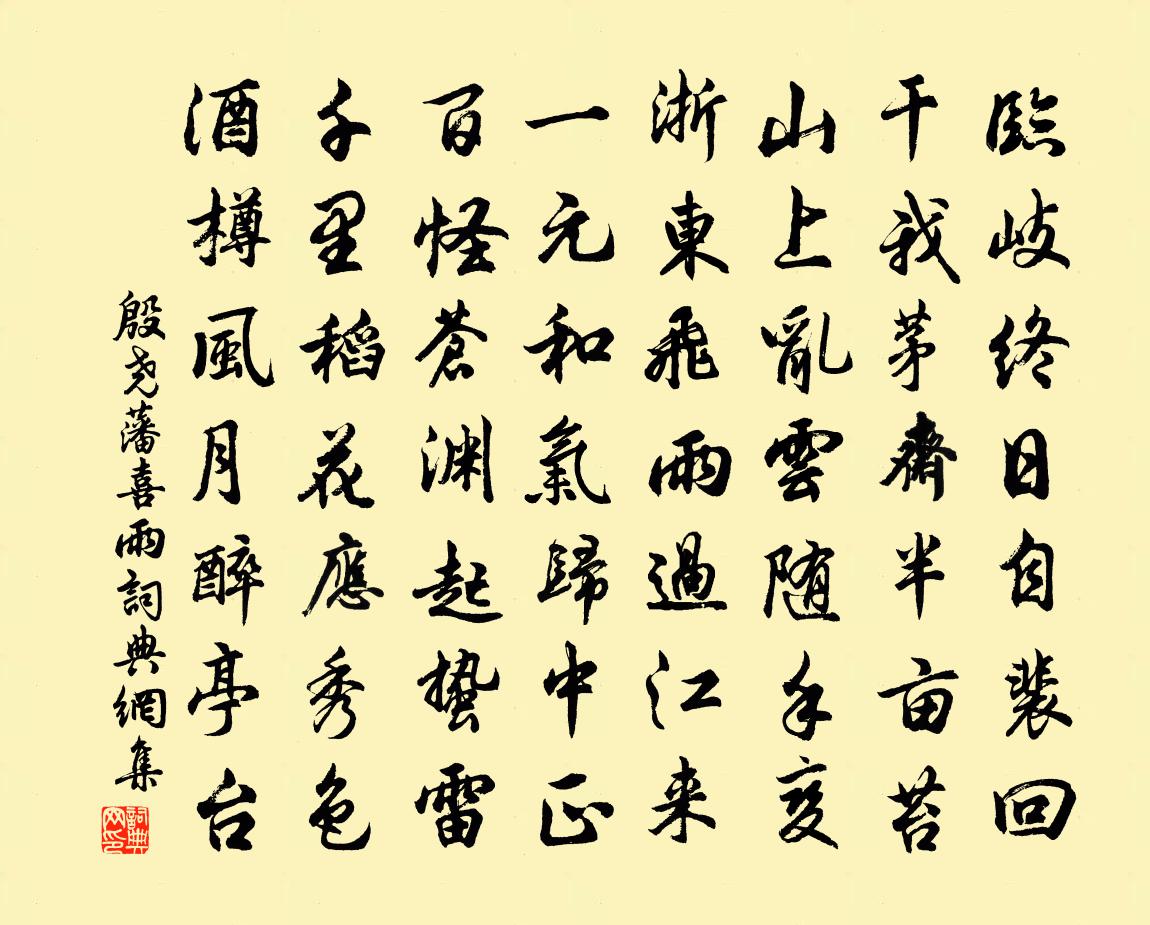 臨岐終日自裴回
干我茅齋半亩苔
山上亂雲随手变
浙東飛雨過江来
一元和氣歸中正
百怪蒼渊起蛰雷
千里稻花應秀色
酒樽風月醉亭台
殷尧藩喜雨詞典網集
詞典网印